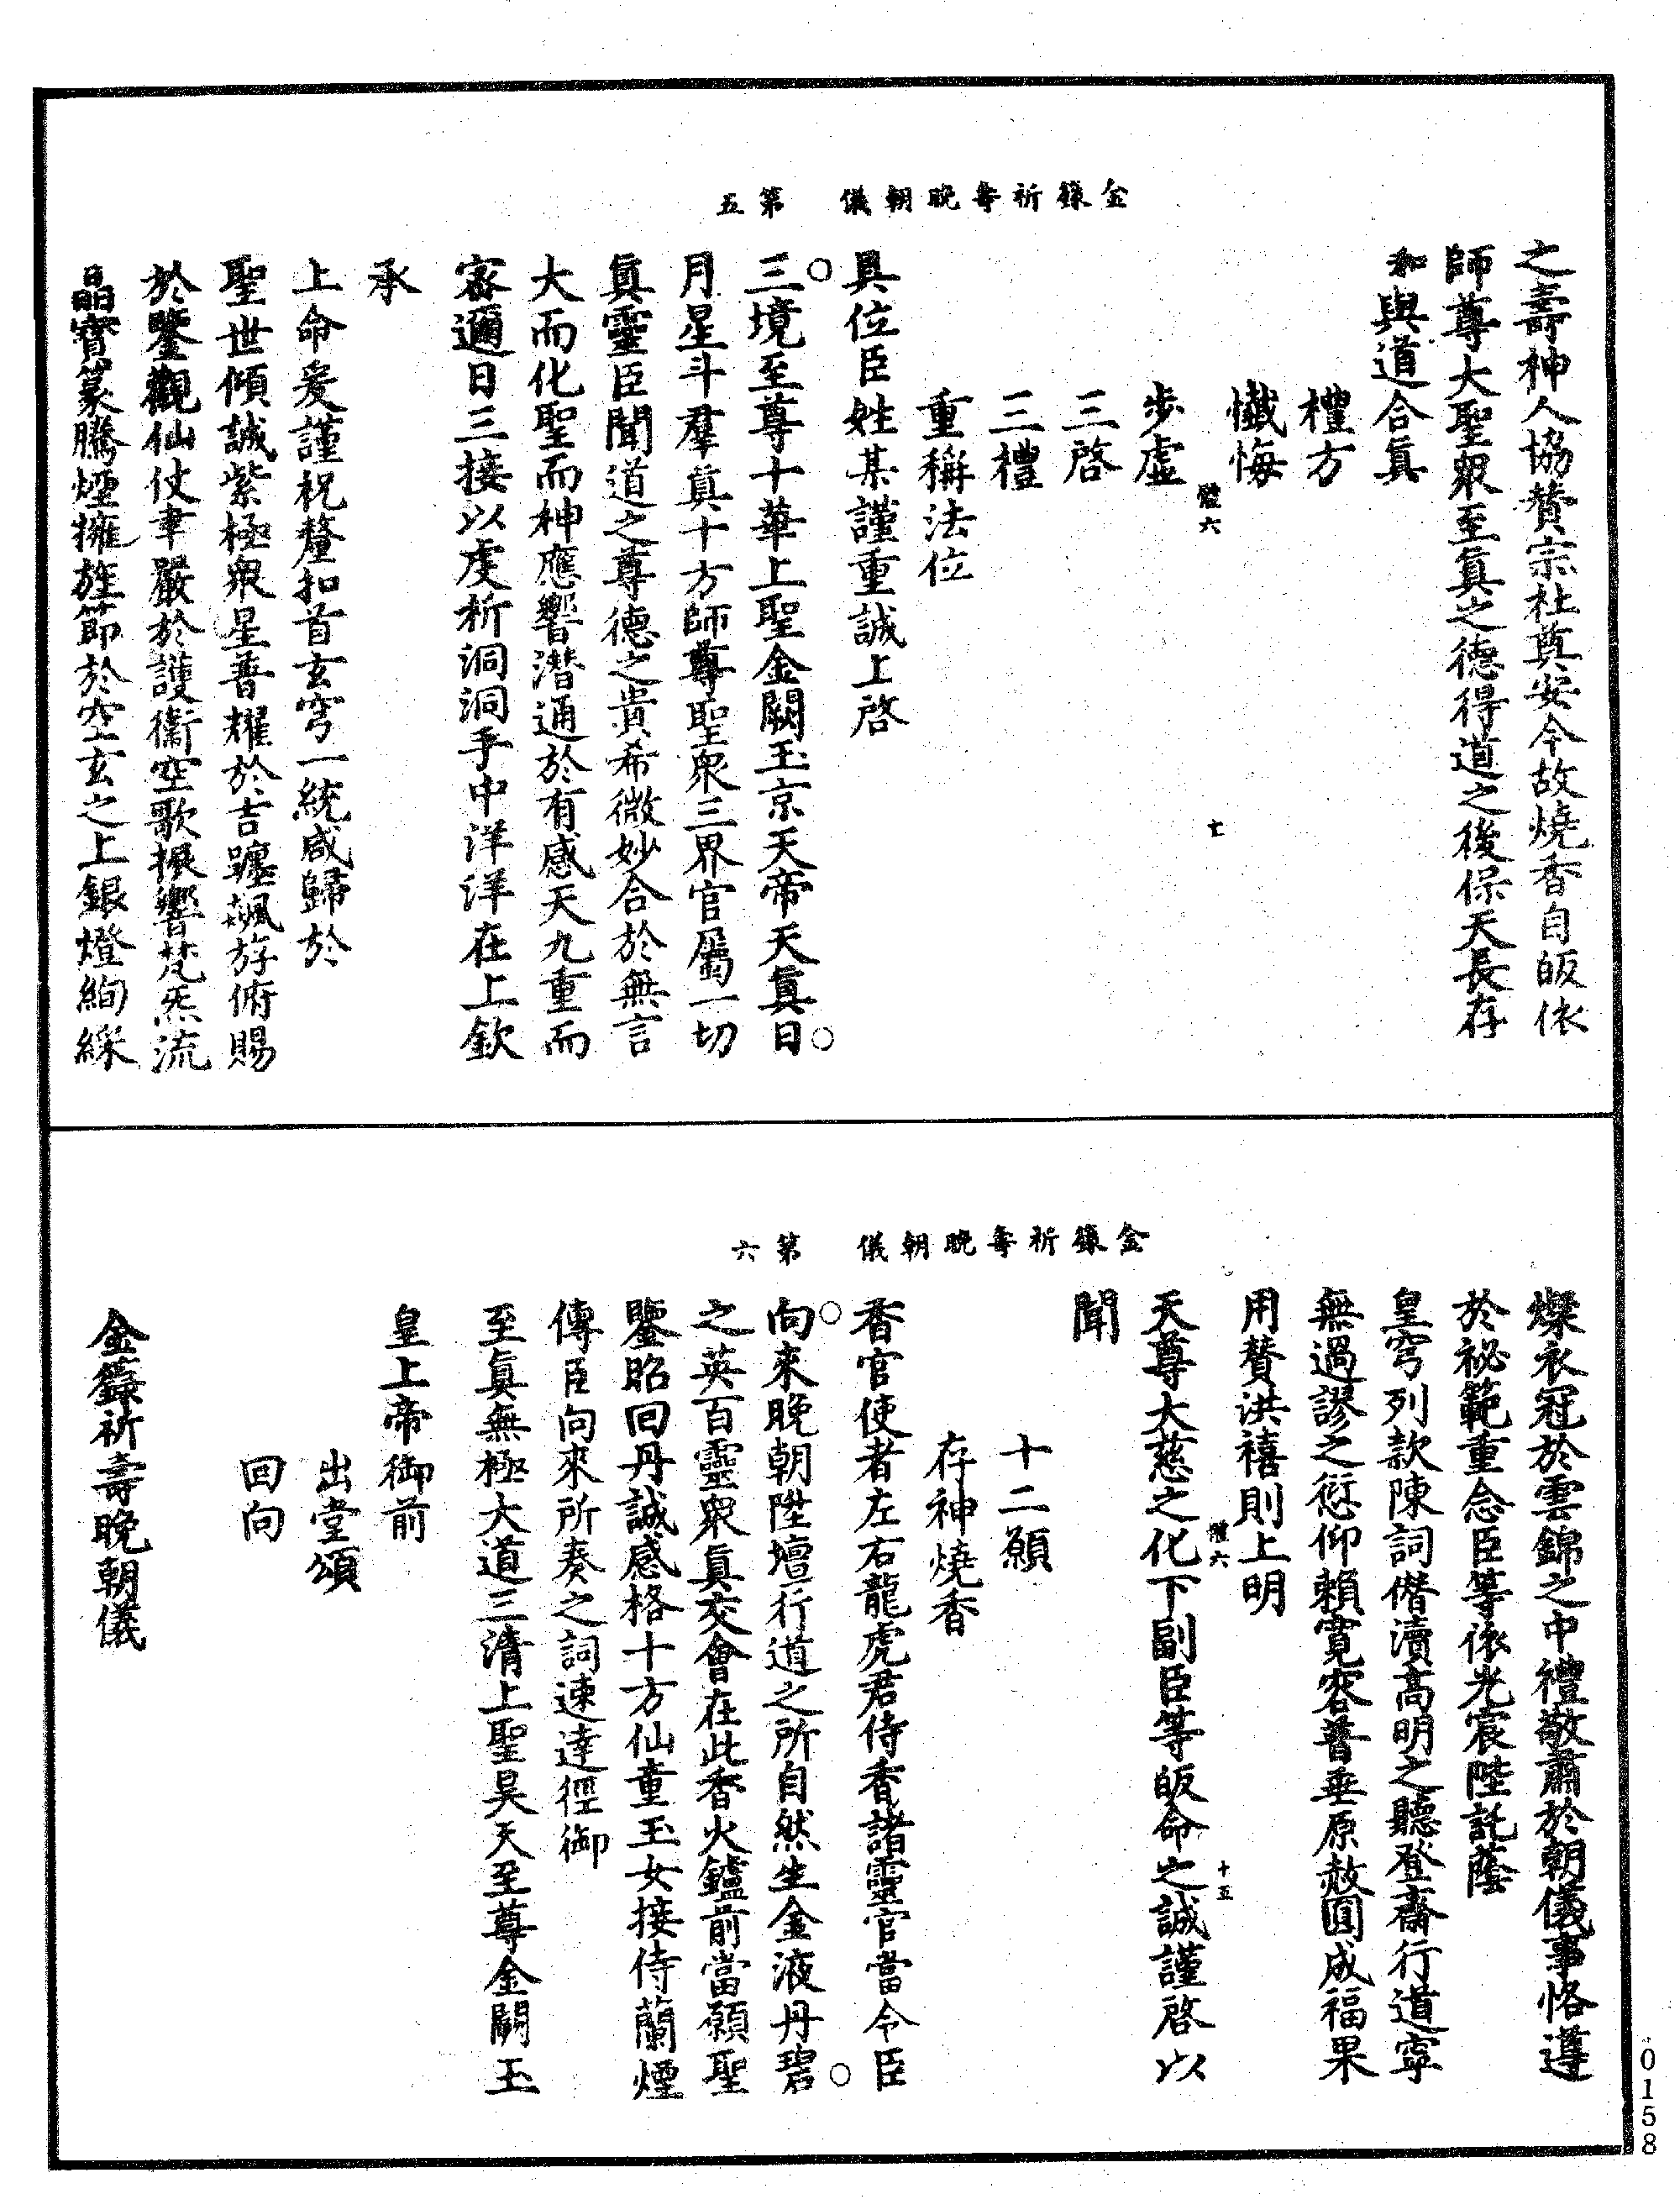 金籙祈壽晚朝儀　第五
之壽神人協贊宗社奠安今故燒香自皈依
師尊大聖衆至眞之德得道之後保天長存
和與道合眞
禮方
懺悔
體六
七
步虛
三啓
三禮
重稱法位
具位臣姓某謹重誠上啓
三境至尊十華上聖金闕玉京天帝天眞日
月星斗羣眞十方師尊聖衆三界官屬一切
眞靈臣聞道之尊德之貴希微妙合於無言
大而化聖而神應響潛通於有感天九重而
密邇日三接以虔祈洞洞乎中洋洋在上欽
承
上命爰謹祝釐扣首玄穹一統咸歸於
聖世傾誠紫極衆星普耀於吉躔飆斿俯賜
於鑒觀仙仗聿嚴於護衞空歌振響梵炁流
晶寶篆騰煙擁旌節於空玄之上銀燈絢綵
金籙祈壽晚朝儀　第六
燦衣冠於雲錦之中禮敬肅於朝儀事恪遵
於祕範重念臣等依光宸陛託蔭
皇穹列款陳詞僭瀆高明之聽登齋行道寧
無過謬之愆仰賴寬容普垂原赦圓成福果
用贊洪禧則上明
體六
十五
天尊大慈之化下副臣等皈命之誠謹啓以
聞
十二願
存神燒香
香官使者左右龍虎君侍香諸靈官當令臣
向來晚朝陞壇行道之所自然生金液丹碧
之英百靈衆眞交會在此香火鑪前當願聖
鑒昭回丹誠感格十方仙童玉女接侍蘭煙
傳臣向來所奏之詞速達徑御
至眞無極大道三清上聖昊天至尊金闕玉
皇上帝御前
出堂頌
回向
金籙祈壽晚朝儀
0158